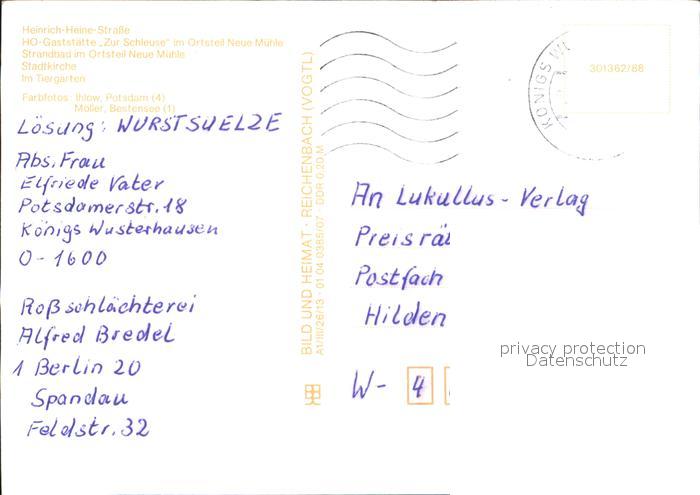 Heinrich-Heine-Straße
HO-Gaststätte „Zur Schleuse" im Ortsteil Neue Mühle
Strandbad im Ortsteil Neue Mühle
Stadtkirche
Im Tiergarten
Farbfotos: Ihlow, Potsdam (4)
Möller, Bestensee (1)
Lösung: WURSTSUELZE
Abs. Frau
Elfriede Vater
Potsdamerstr. 18
Königs Wusterhausen
O-1600
Roßschlächterei
Alfred Bredel
1 Berlin 20
Spandau
Feldstr. 32
BILD UND HEIMAT · REICHENBACH (VOGTL)
A1/III/26/13 · 01 04 0385/07 · DDR 0,20 M
KÖNIGS WU
301362/88
An Lukullus-Verlag
Preisrät
Postfach
Hilden
W- 4
privacy protection
Datenschutz